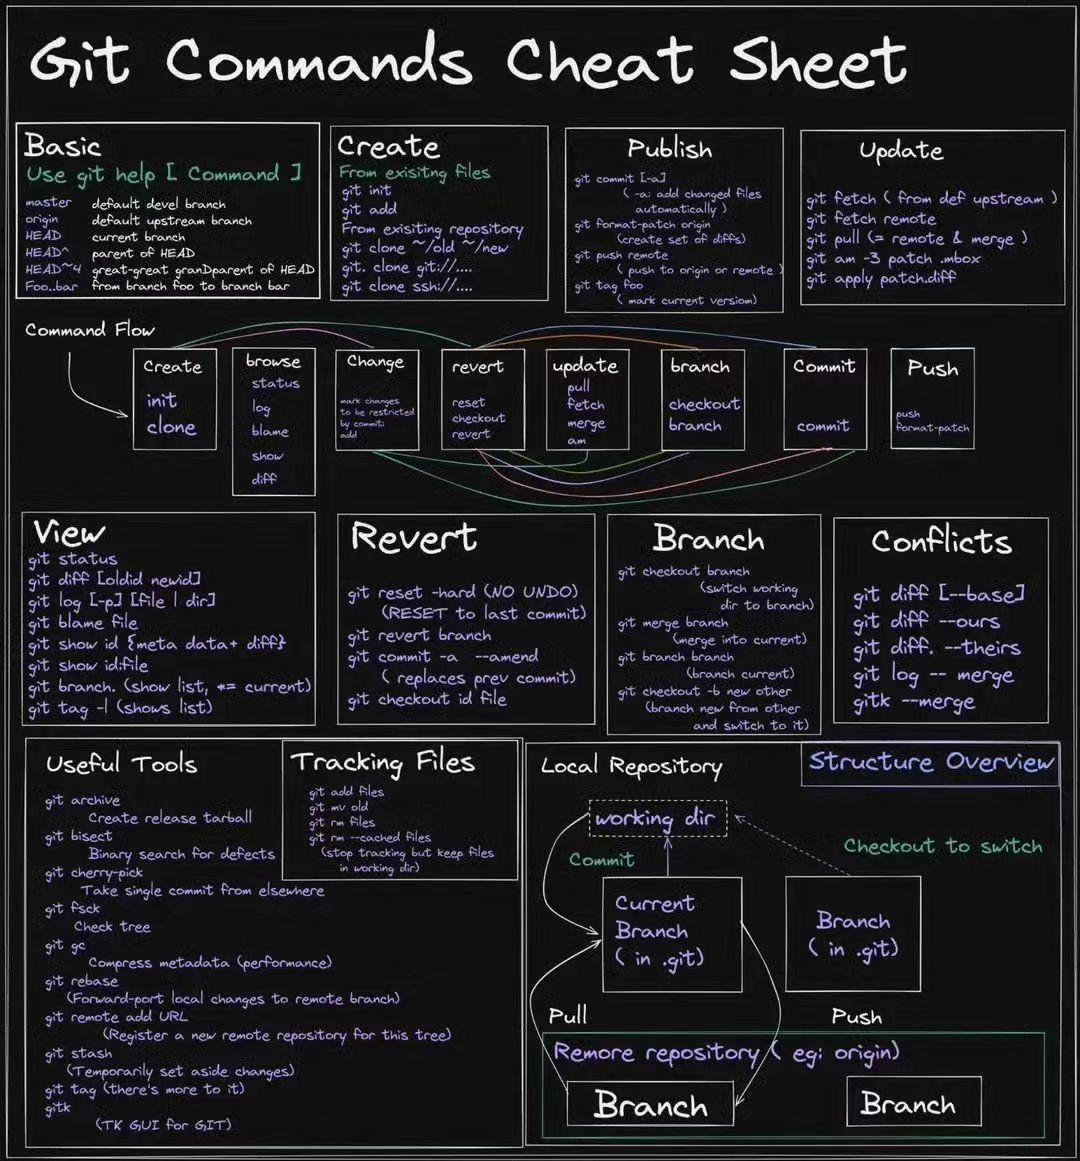 Git Commands Cheat Sheet
Basic
Use git help [ Command ]
master default devel branch
origin default upstream branch
HEAD current branch
HEAD^ parent of HEAD
HEAD~4 great-great granDparent of HEAD
Foo..bar from branch foo to branch bar
Create
From exisitng files
git init
git add
From exisiting repository
git clone ~/old ~/new
git. clone git://....
git clone ssh://....
Publish
git commit [-a]
( -a: add changed files
automatically )
git format-patch origin
(create set of diffs)
git push remote
( push to origin or remote )
git tag foo
( mark current version)
Update
git fetch ( from def upstream )
git fetch remote
git pull (= remote & merge )
git am -3 patch .mbox
git apply patch.diff
Command Flow
Create
init
clone
browse
status
log
blame
show
diff
Change
mark changes
to be restricted
by commit:
add
revert
reset
checkout
revert
update
pull
fetch
merge
am
branch
checkout
branch
Commit
commit
Push
push
format-patch
View
git status
git diff [oldid newid]
git log [-p] [file | dir]
git blame file
git show id {meta data+ diff}
git show id:file
git branch. (show list, *= current)
git tag -l (shows list)
Revert
git reset -hard (NO UNDO)
(RESET to last commit)
git revert branch
git commit -a --amend
( replaces prev commit)
git checkout id file
Branch
git checkout branch
(switch working
dir to branch)
git merge branch
(merge into current)
git branch branch
(branch current)
git checkout -b new other
(branch new from other
and switch to it)
Conflicts
git diff [--base]
git diff --ours
git diff. --theirs
git log -- merge
gitk --merge
Useful Tools
git archive
Create release tarball
git bisect
Binary search for defects
git cherry-pick
Take single commit from elsewhere
git fsck
Check tree
git gc
Compress metadata (performance)
git rebase
(Forward-port local changes to remote branch)
git remote add URL
(Register a new remote repository for this tree)
git stash
(Temporarily set aside changes)
git tag (there's more to it)
gitk
(TK GUI for GIT)
Tracking Files
git add files
git mv old
git rm files
git rm --cached files
(stop tracking but keep files
in working dir)
Structure Overview
Local Repository
working dir
Commit
Checkout to switch
Current
Branch
( in .git)
Branch
( in .git)
Pull
Push
Remore repository ( eg: origin)
Branch
Branch